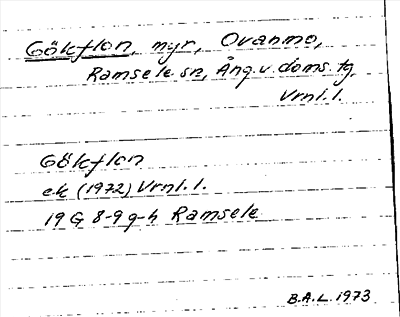 Gökflon, myr, Ovanmo,
Ramsele sn, Ång.v.doms.tg.
Vrnl.l.
Gökflon
ek (1972) Vrnl.l.
19G 8-9 g-h Ramsele
B.A.L. 1973